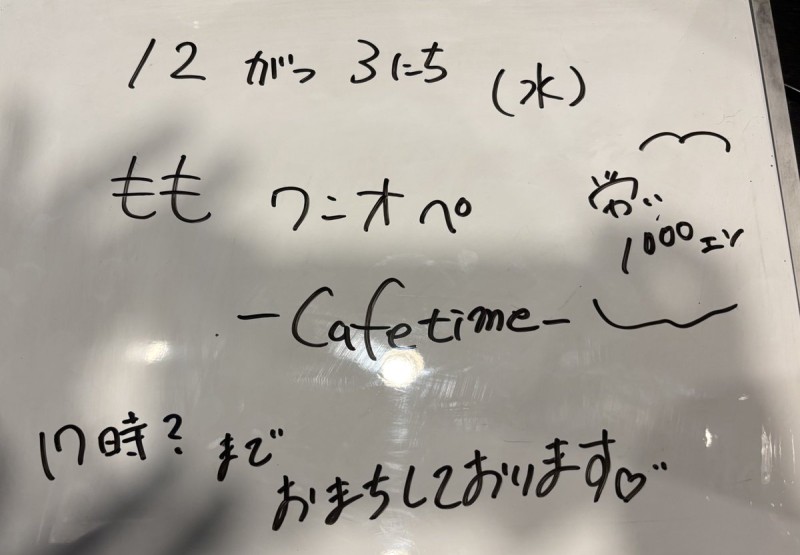 12 がつ 3にち (水)
もも ワニオペ
1000エン
-Cafetime-
17時?まで
おまちしております♡